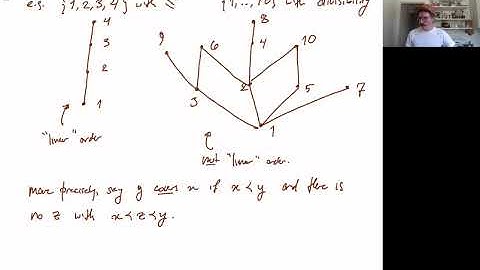 e.g. {1,2,3,4} with ≤ {1,..,10} with divisibility
4
3
2
1
"linear" order
8
9
6
4
10
3
2
5
7
1
not "linear" order.
more precisely, say y covers x if x < y and there is
no z with x < z < y.